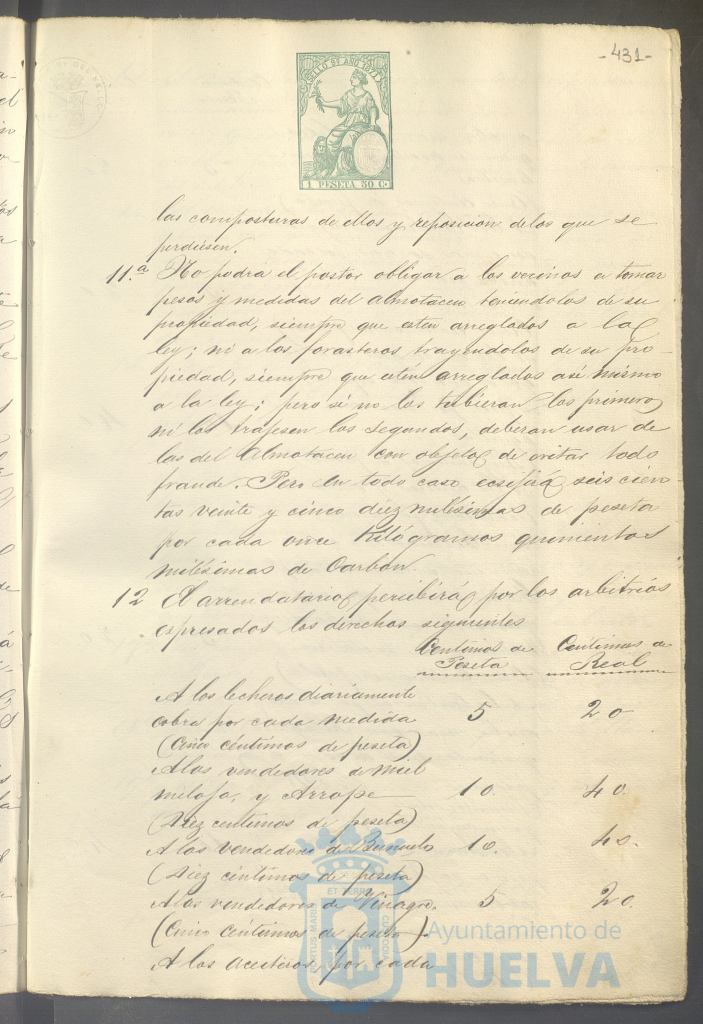 -431-
SELLO 9º AÑO 1877
1 PESETA 50 C.
las composturas de ellos y reposicion de los que se
perdiesen.
11.ª No podrá el postor obligar a los vecinos a tomar
pesos y medidas del almotacen teniendolos de su
propiedad, siempre que esten arreglados a la
ley; ni a los forasteros trayendolos de su pro-
piedad, siempre que estén arreglados asi mismo
a la ley; pero si no los tubieran los primeros
ni los trajesen los segundos, deberan usar de
los del Almotacen con objeto de evitar todo
fraude. Pero en todo caso ecsijirá seis cien-
tas veinte y cinco diez milésimas de peseta
por cada once Kilógramos quinientas
milésimas de Carbon.
12 El arrendatario percibirá por los arbitrios
espresados los derechos siguientes
Centimos de Peseta Centimos de Real
A los lecheros diariamente
cobra por cada medida 5 20
(Cinco céntimos de peseta)
A los vendedores de miel
meloja, y Arrope 10. 40.
(Diez centimos de peseta)
A los vendedores de Buñuelo 10. 40.
(Diez céntimos de peseta)
A los vendedores de Vinagre. 5 20.
(Cinco céntimos de peseta).
A los aceiteros por cada
Ayuntamiento de
HUELVA